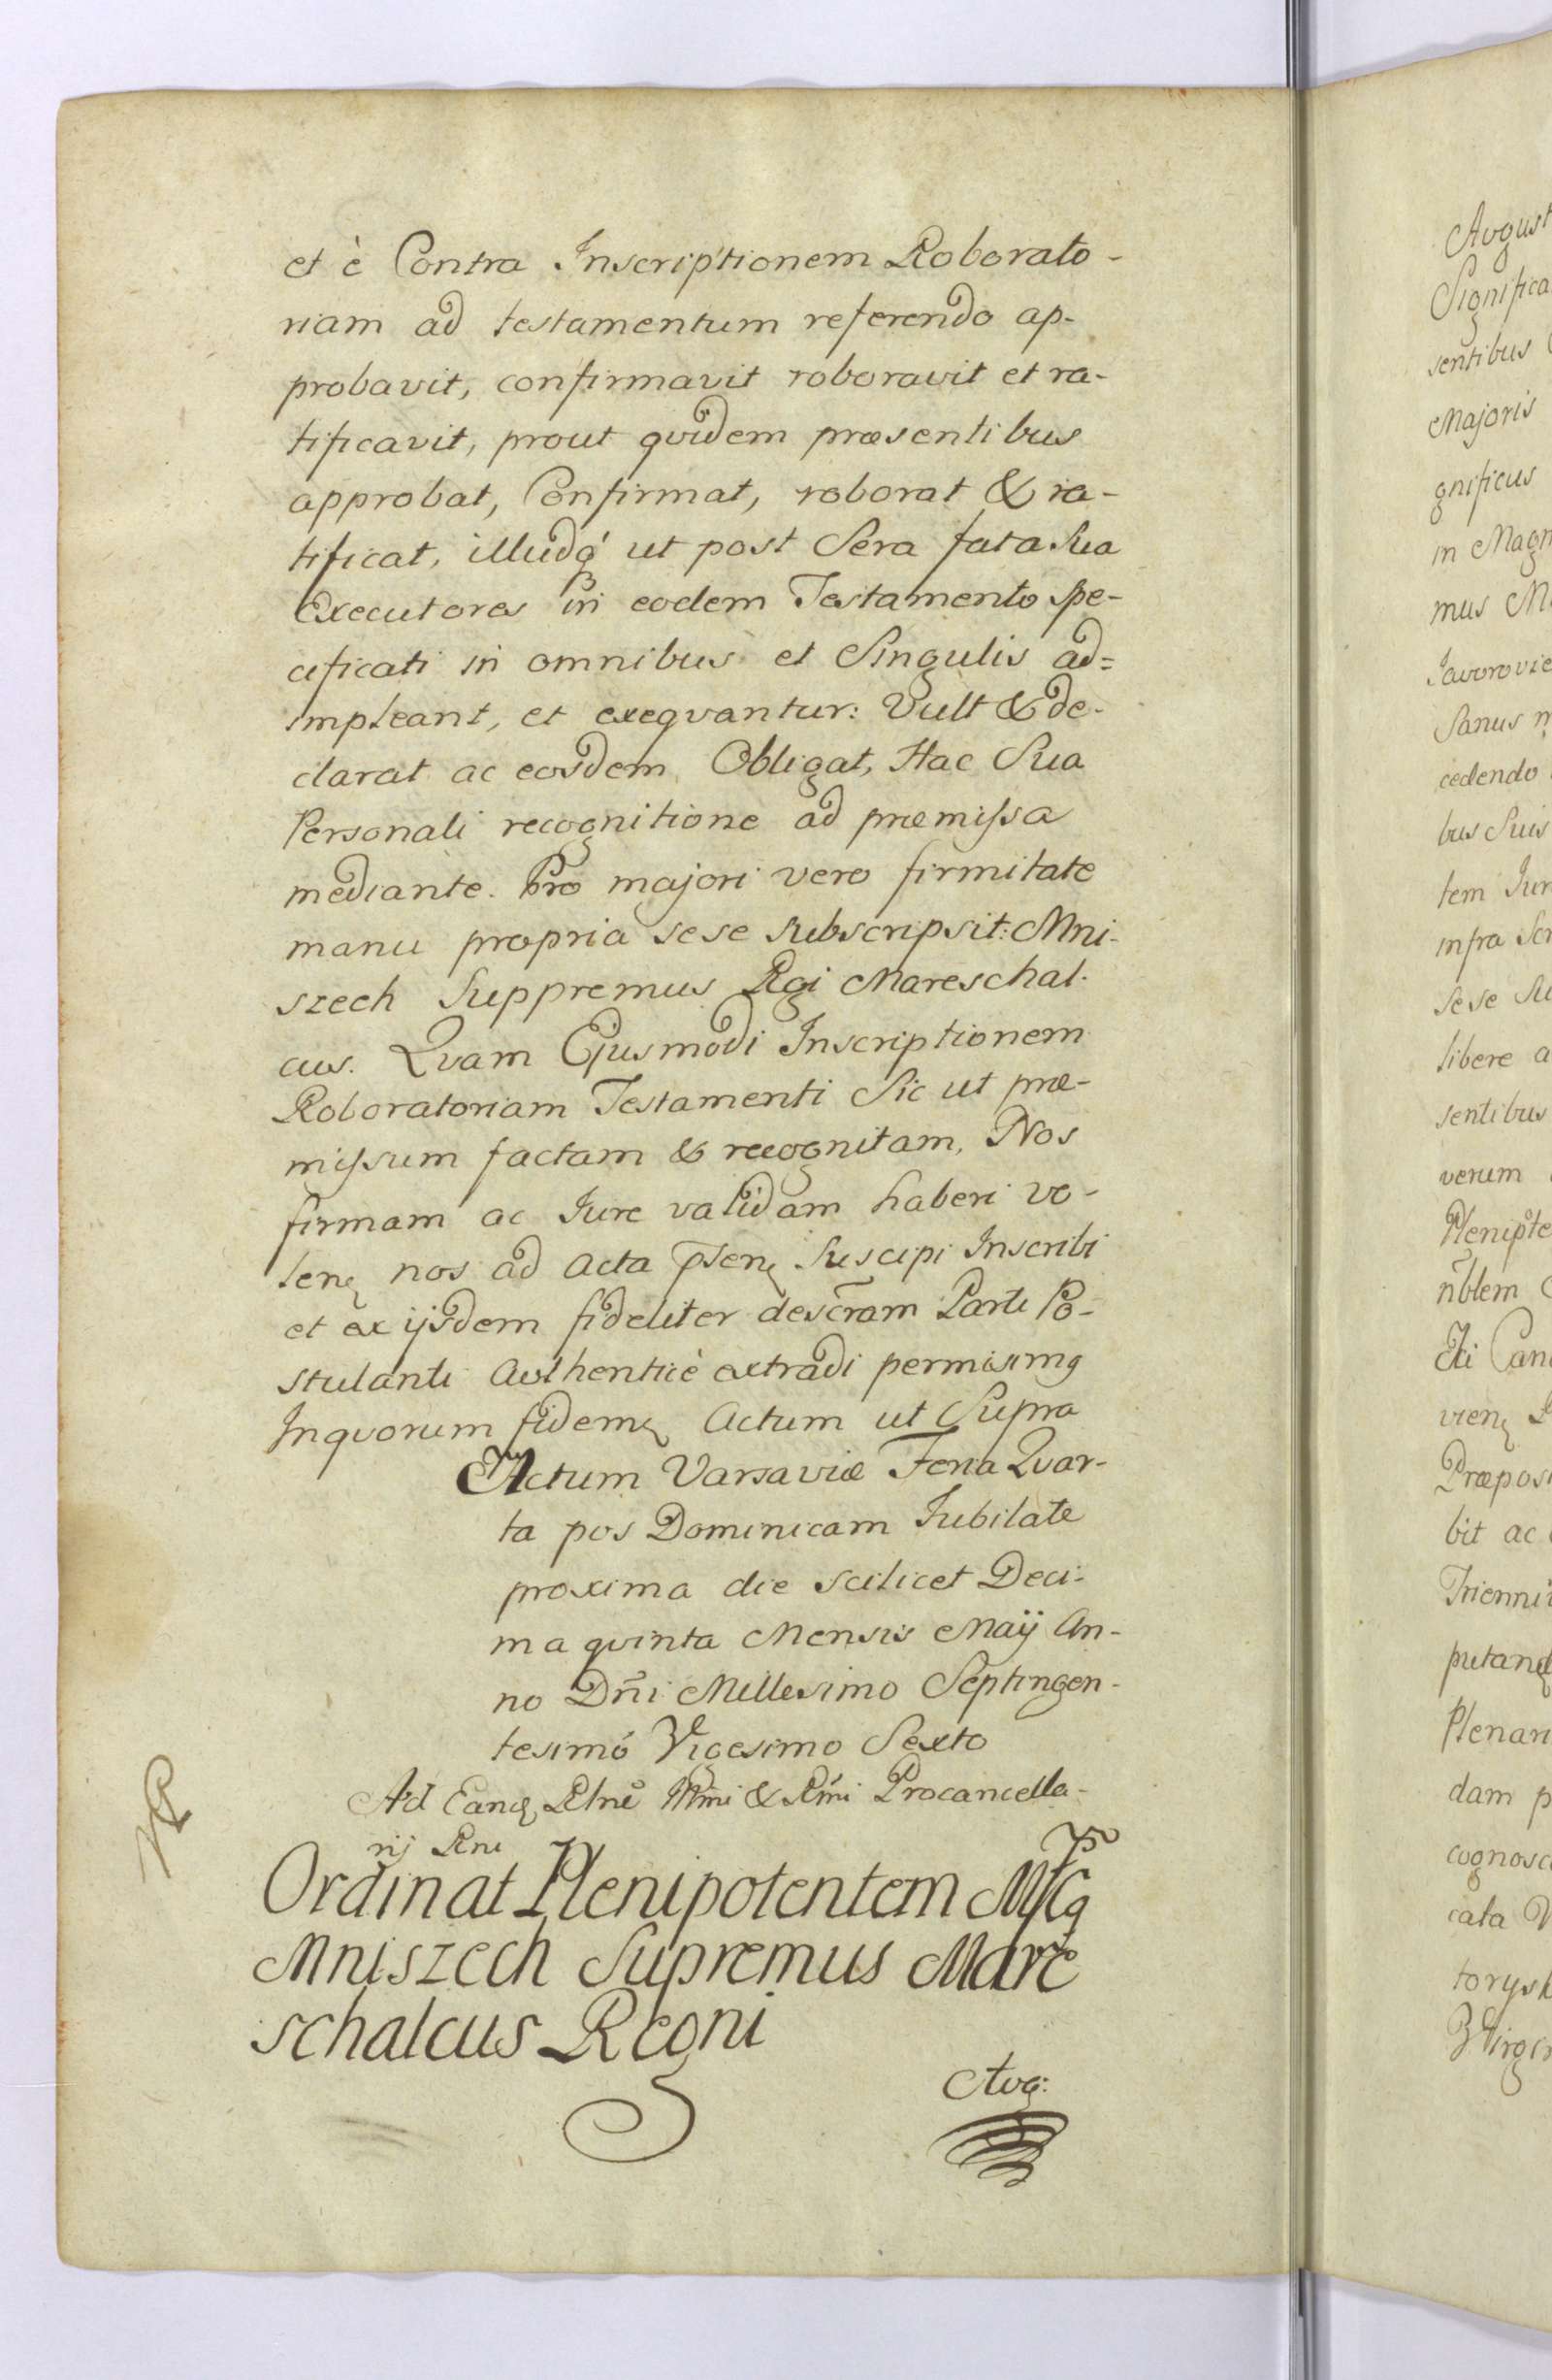 et è Contra Inscriptionem Roborato-
riam ad testamentum referendo ap-
probavit, confirmavit roboravit et ra-
tificavit, prout qvidem præsentibus
approbat, Confirmat, roborat & ra-
tificat, illudq' ut post Sera fata Sua
Executores in eodem Testamento spe-
cificati in omnibus et Singulis ad=
impleant, et exeqvantur: Vult & de-
clarat ac eosdem Obligat, Hac Sua
Personali recognitione ad præmissa
mediante. Pro majori vero firmitate
manu propria sese subscripsit: Mni-
szech Suppremus Rgi Mareschal-
cus. Qvam Ejusmodi Inscriptionem
Roboratoriam Testamenti Sic ut præ-
missum factam & recognitam, Nos
firmam ac Jure validam haberi vo-
len nos ad Acta pñen Suscipi Inscribi
et ex ijsdem fideliter descram Parti Po-
stulanti Authenticè extradi permisimg
Inqvorum fidem Actum ut Supra
Actum Varsaviæ Feria Qvar-
ta pos Dominicam Jubilate
proxima die scilicet Deci-
ma qvinta Mensis Maij An-
no Dñi Millesimo Septingen-
tesimó Vigesimo Sexto
Ad Eand Rlne Illmi & Rmi Procancella-
rij Rni
Ordinat Plenipotentem
Mniszech Supremus Mare
schalcus Regni
Aug:
August
Significa
sentibus
Majoris
gnificus
in Magn
mus M
Javorovie
Sanus m
cedendo
bus Suis
tem Jur
infra Scr
sese Su
libere a
sentibus
verum
Plenipote
nblem
Cti Canc
vien
Præposi
bit ac
Trienni
putand
Plenari
dam p
cognosc
cata V
torysk